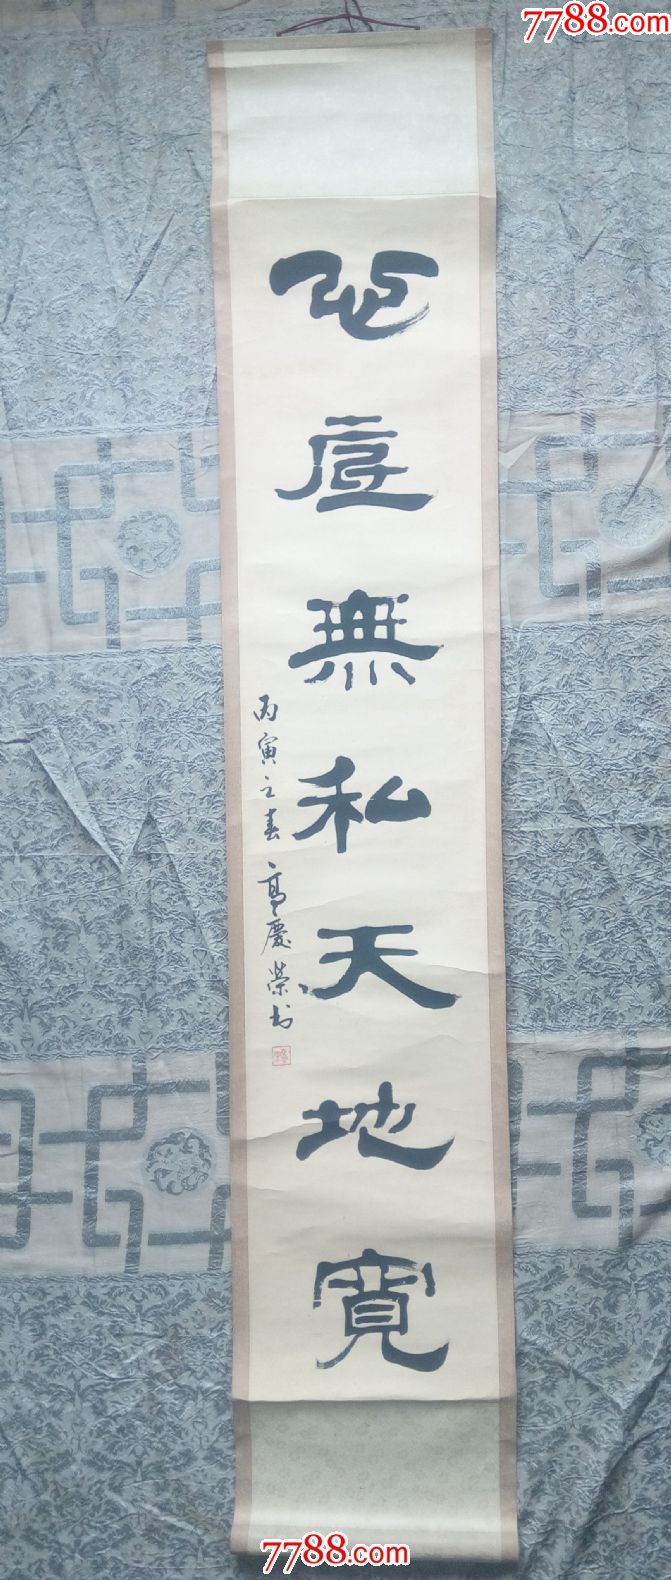 7788.com
心底無私天地寬
丙寅之春高慶榮书
7788.com